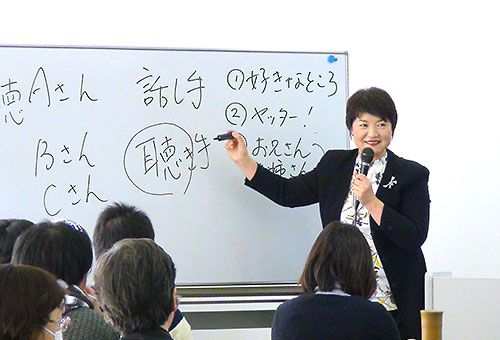 聴 Aさん
Bさん
Cさん
話し手
聴き手
①好きなところ
②ヤッター!
お兄さんへ
お姉さん